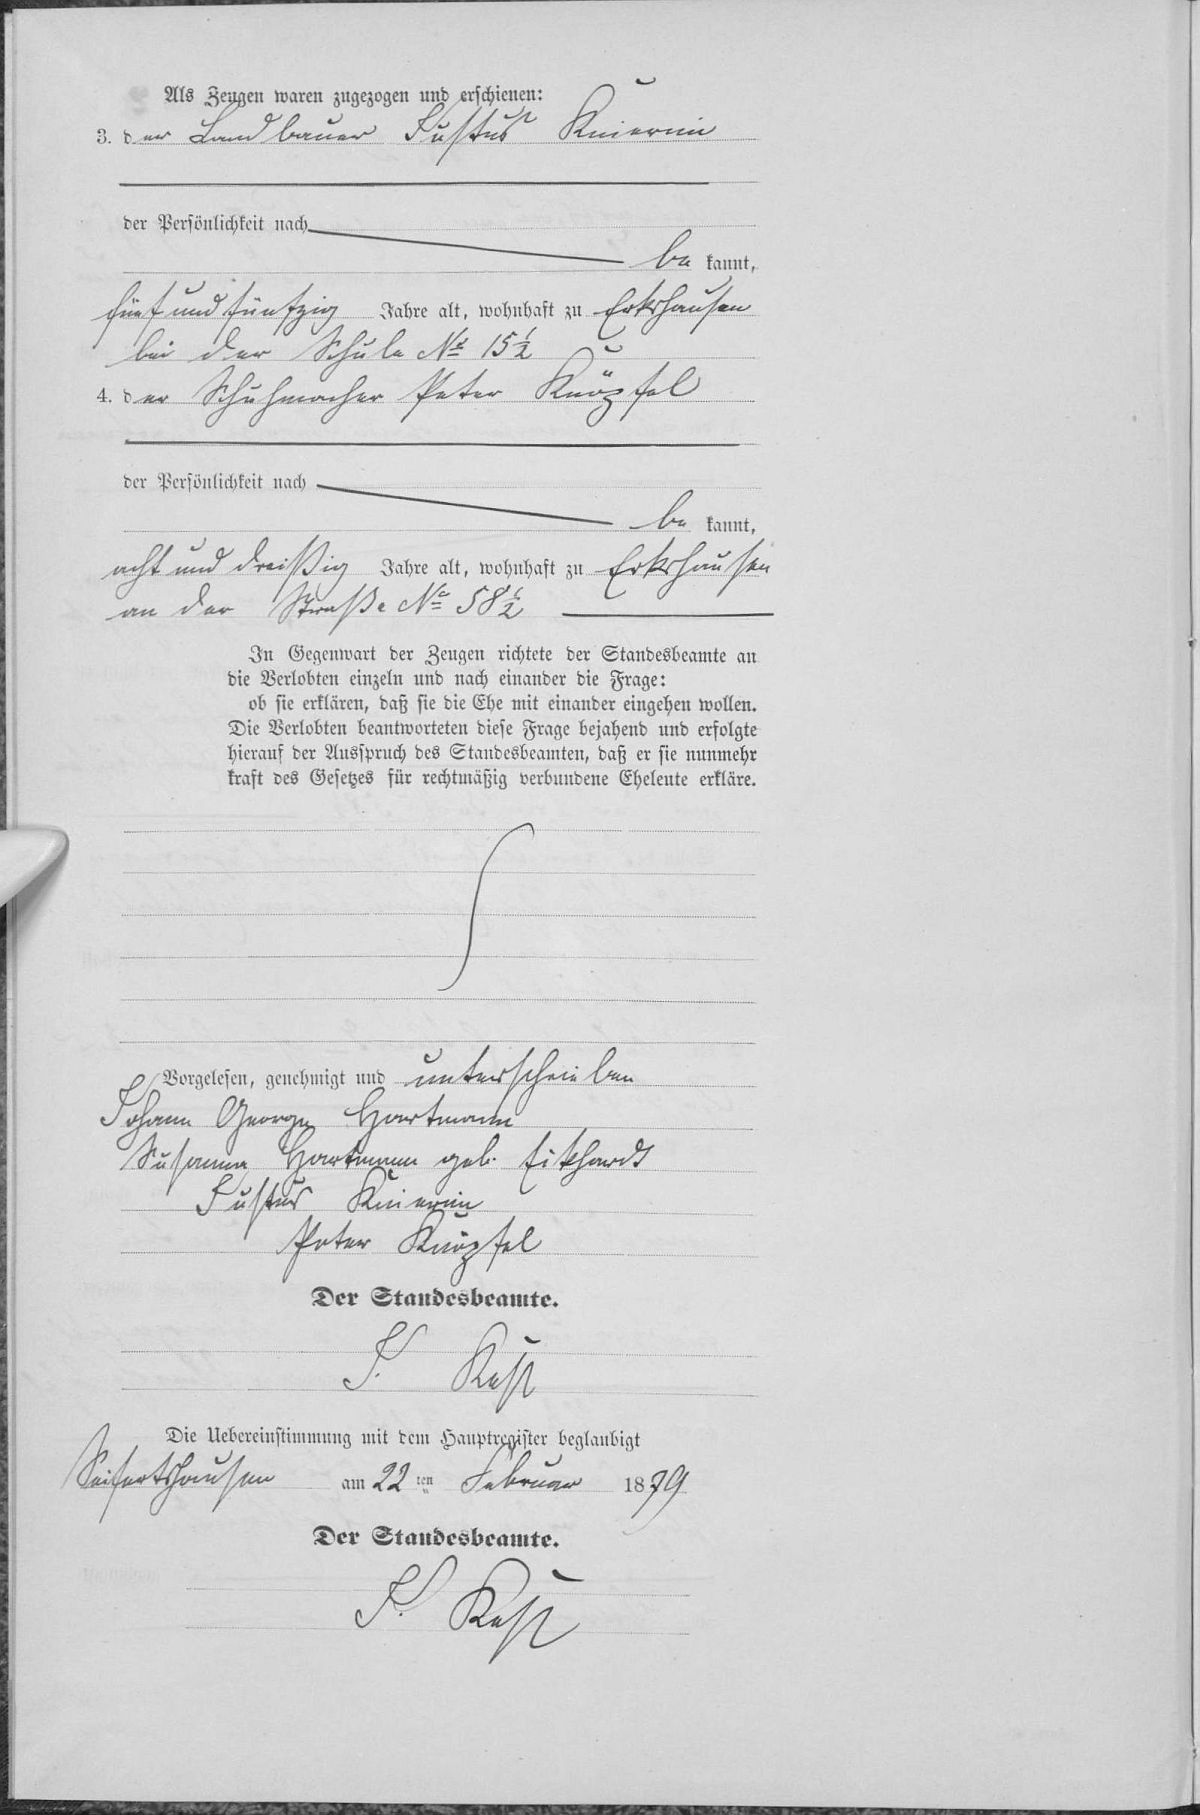 Als Zeugen waren zugezogen und erschienen:
3. der Landbauer Justus Knierim
der Persönlichkeit nach
be kannt,
fünf und fünfzig Jahre alt, wohnhaft zu Erkshausen
bei der Schule No 15 1/2
4. der Schuhmacher Peter Knöpfel
der Persönlichkeit nach
be kannt,
acht und dreißig Jahre alt, wohnhaft zu Erkshausen
an der Straße No 58 1/2
In Gegenwart der Zeugen richtete der Standesbeamte an
die Verlobten einzeln und nach einander die Frage:
ob sie erklären, daß sie die Ehe mit einander eingehen wollen.
Die Verlobten beantworteten diese Frage bejahend und erfolgte
hierauf der Ausspruch des Standesbeamten, daß er sie nunmehr
kraft des Gesetzes für rechtmäßig verbundene Eheleute erkläre.
Vorgelesen, genehmigt und unterschrieben
Johann George Hartmann
Susanna Hartmann geb. Eikhardt
Justus Knierim
Peter Knöpfel
Der Standesbeamte.
J. Kest
Die Uebereinstimmung mit dem Hauptregister beglaubigt
Seifertshausen am 22 ten Februar 1879
Der Standesbeamte.
J. Kest